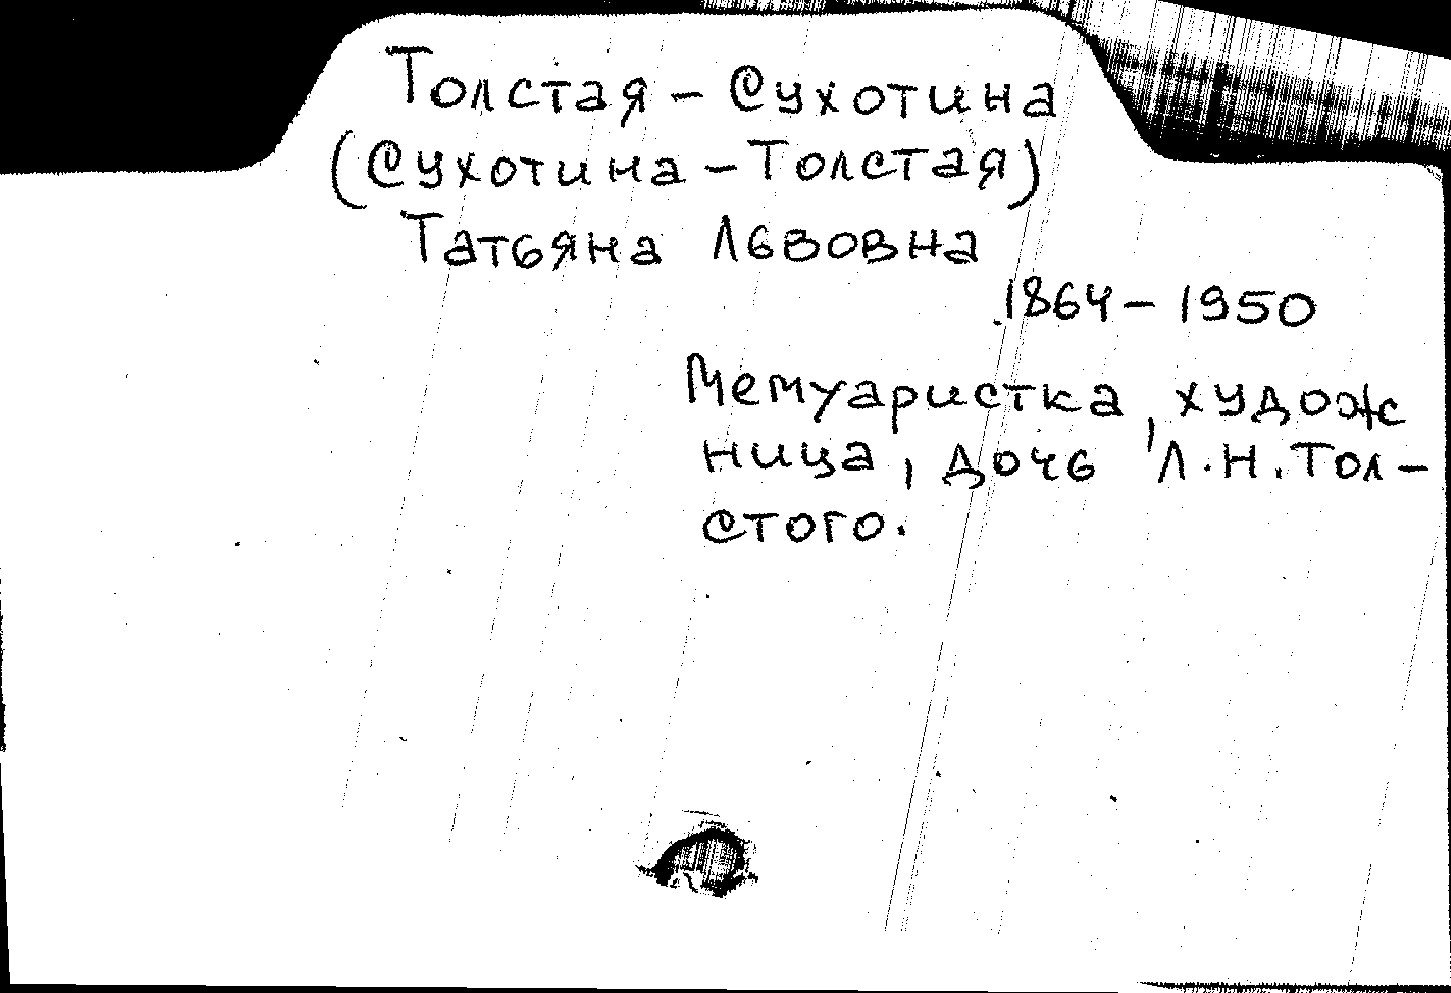 Толстая - Сухотина
(Сухотина - Толстая)
Татьяна Львовна
1864 - 1950
Мемуаристка, худож
ница, дочь Л.Н. Тол-
стого.